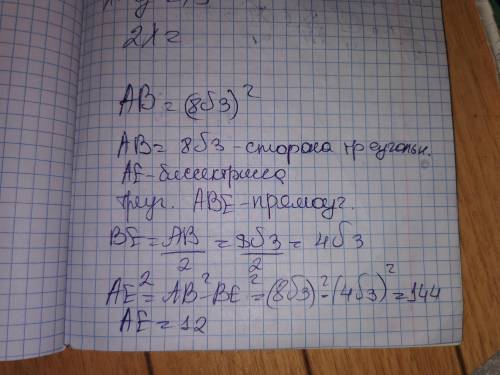 2x =
AB = (8√3)²
AB = 8√3 - сторона треугольн.
AE - биссектриса
треуг. ABE - прямоуг.
BE = AB/2 = 8√3/2 = 4√3
AE² = AB² - BE² = (8√3)² - (4√3)² = 144
AE = 12